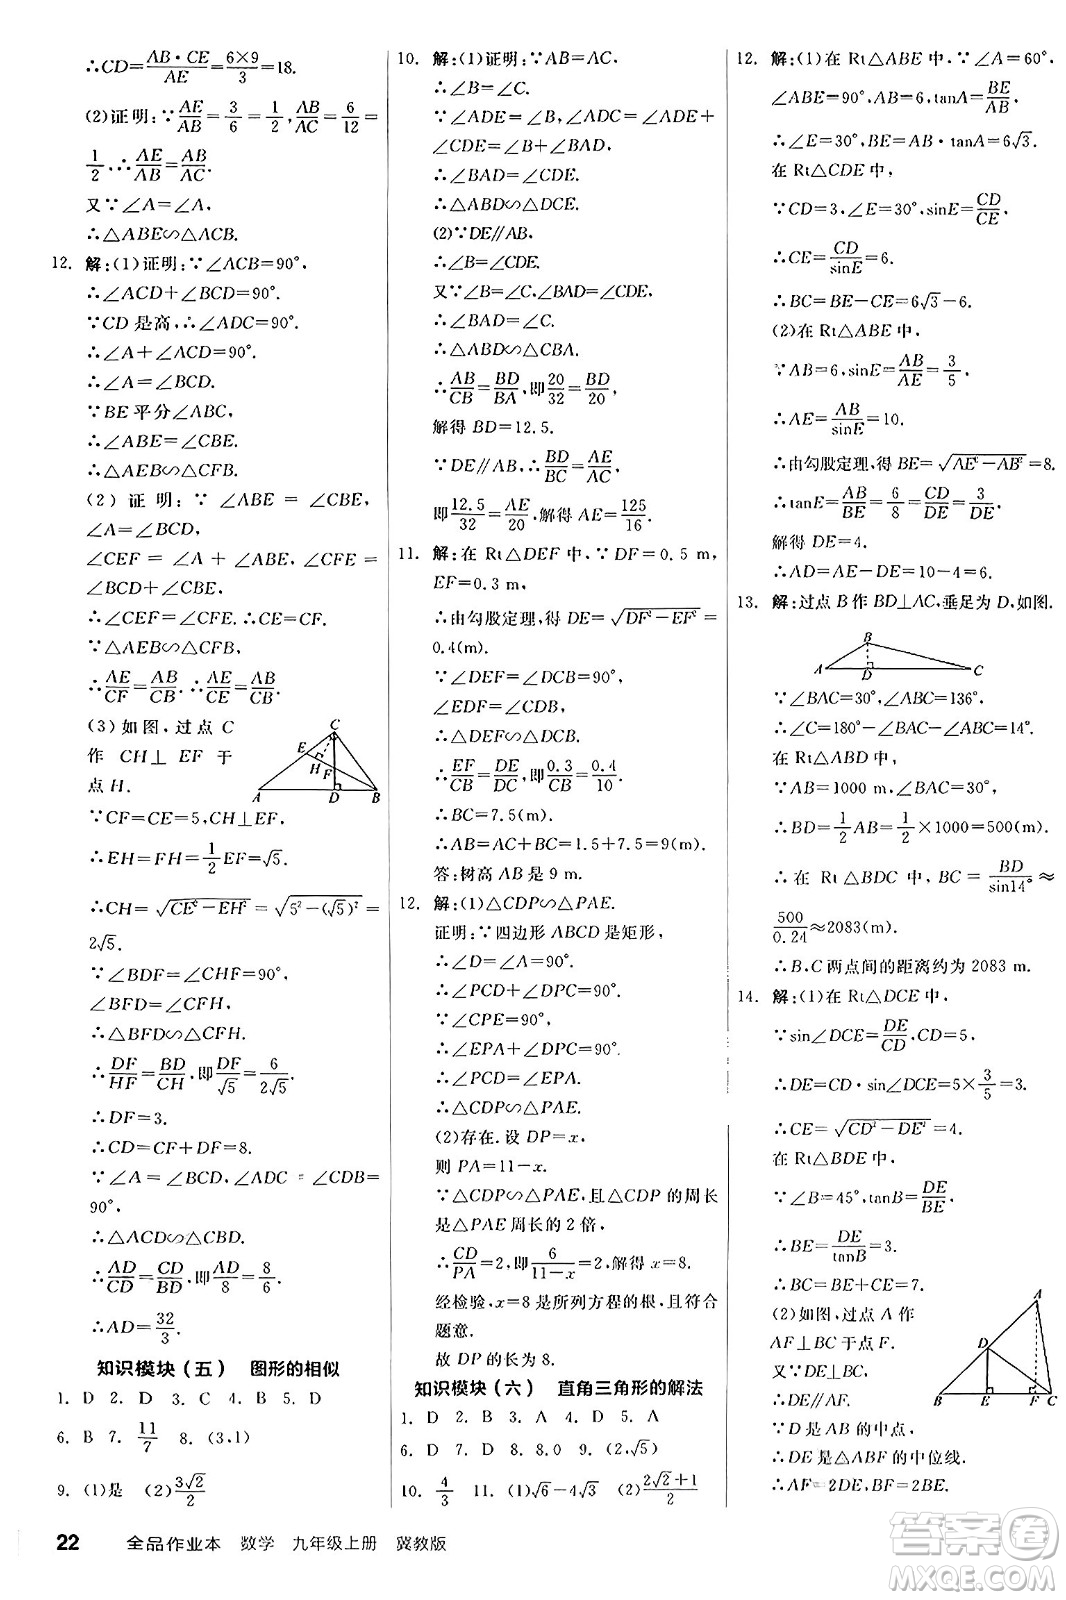 ∴CD=AB·CE/AE=6×9/3=18.
(2)证明:∵AE/AB=3/6=1/2,AB/AC=6/12=
1/2,∴AE/AB=AB/AC.
又∵∠A=∠A,
∴△ABE∽△ACB.
12. 解:(1)证明:∵∠ACB=90°,
∴∠ACD+∠BCD=90°.
∵CD是高,∴∠ADC=90°.
∴∠A+∠ACD=90°.
∴∠A=∠BCD.
∵BE平分∠ABC,
∴∠ABE=∠CBE.
∴△AEB∽△CFB.
(2)证明:∵∠ABE=∠CBE,
∠A=∠BCD,
∠CEF=∠A+∠ABE,∠CFE=
∠BCD+∠CBE,
∴∠CFE=∠CEF.∴CE=CF.
∵△AEB∽△CFB,
∴AE/CF=AB/CB.∴AE/CE=AB/CB.
(3)如图,过点C
作CH⊥EF于
点H.
C
E
H
F
A
D
B
∵CF=CE=5,CH⊥EF,
∴EH=FH=1/2EF=√5.
∴CH=√(CE²-EH²)=√(5²-(√5)²)=
2√5.
∵∠BDF=∠CHF=90°,
∠BFD=∠CFH,
∴△BFD∽△CFH.
∴DF/HF=BD/CH,即DF/√5=6/2√5.
∴DF=3.
∴CD=CF+DF=8.
∵∠A=∠BCD,∠ADC=∠CDB=
90°,
∴△ACD∽△CBD.
∴AD/CD=CD/BD,即AD/8=8/6.
∴AD=32/3.
知识模块(五) 图形的相似
1. D 2. D 3. C 4. B 5. D
6. B 7. 11/7 8. (3,1)
9. (1)是 (2)3√2/2
10. 解:(1)证明:∵AB=AC,
∴∠B=∠C.
∵∠ADE=∠B,∠ADC=∠ADE+
∠CDE=∠B+∠BAD,
∴∠BAD=∠CDE.
∴△ABD∽△DCE.
(2)∵DE∥AB,
∴∠BAD=∠CDE.
又∵∠B=∠C,∠BAD=∠CDE,
∴∠BAD=∠C.
∴△ABD∽△CBA.
∴AB/CB=BD/BA,即20/32=BD/20,
解得BD=12.5.
∵DE∥AB,∴BD/BC=AE/AC,
即12.5/32=AE/20,解得AE=125/16.
11. 解:在Rt△DEF中,∵DF=0.5 m,
EF=0.3 m,
∴由勾股定理,得DE=√(DF²-EF²)=
0.4(m).
∵∠DEF=∠DCB=90°,
∠EDF=∠CDB,
∴△DEF∽△DCB.
∴EF/CB=DE/DC,即0.3/CB=0.4/10.
∴BC=7.5(m).
∴AB=AC+BC=1.5+7.5=9(m).
答:树高AB是9 m.
12. 解:(1)△CDP∽△PAE.
证明:∵四边形ABCD是矩形,
∴∠D=∠A=90°.
∴∠PCD+∠DPC=90°.
∵∠CPE=90°,
∴∠EPA+∠DPC=90°.
∴∠PCD=∠EPA.
∴△CDP∽△PAE.
(2)存在.设DP=x,
则PA=11-x.
∵△CDP∽△PAE,且△CDP的周长
是△PAE周长的2倍,
∴CD/PA=2,即6/(11-x)=2,解得x=8.
经检验,x=8是所列方程的根,且符合
题意.
故DP的长为8.
知识模块(六) 直角三角形的解法
1. D 2. B 3. A 4. D 5. A
6. D 7. D 8. 8.0 9. (2,√5)
10. 4/3 11. (1)√6-4√3 (2)(2√2+1)/2
12. 解:(1)在Rt△ABE中,∵∠A=60°,
∠ABE=90°,AB=6,tanA=BE/AB,
∴∠E=30°,BE=AB·tanA=6√3.
在Rt△CDE中,
∵CD=3,∠E=30°,sinE=CD/CE,
∴CE=CD/sinE=6.
∴BC=BE-CE=6√3-6.
(2)在Rt△ABE中,
∵AB=6,sinE=AB/AE=3/5,
∴AE=AB/sinE=10.
∴由勾股定理,得BE=√(AE²-AB²)=8.
∴tanE=AB/BE=6/8=CD/DE=3/DE,
解得DE=4.
∴AD=AE-DE=10-4=6.
13. 解:过点B作BD⊥AC,垂足为D,如图.
B
A
D
C
∵∠BAC=30°,∠ABC=136°,
∴∠C=180°-∠BAC-∠ABC=14°.
在Rt△ABD中,
∵AB=1000 m,∠BAC=30°,
∴BD=1/2AB=1/2×1000=500(m).
∴在Rt△BDC中,BC=BD/sin14°≈
500/0.24≈2083(m).
∴B,C两点间的距离约为2083 m.
14. 解:(1)在Rt△DCE中,
∵sin∠DCE=DE/CD,CD=5,
∴DE=CD·sin∠DCE=5×3/5=3.
∴CE=√(CD²-DE²)=4.
在Rt△BDE中,
∵∠B=45°,tanB=DE/BE,
∴BE=DE/tanB=3.
∴BC=BE+CE=7.
(2)如图,过点A作
AF⊥BC于点F.
又∵DE⊥BC,
∴DE∥AF.
∵D是AB的中点,
∴DE是△ABF的中位线.
∴AF=2DE=6.
A
D
B
E
F
C
22 全品作业本 数学 九年级上册 冀教版
答案圈
MXQE.COM